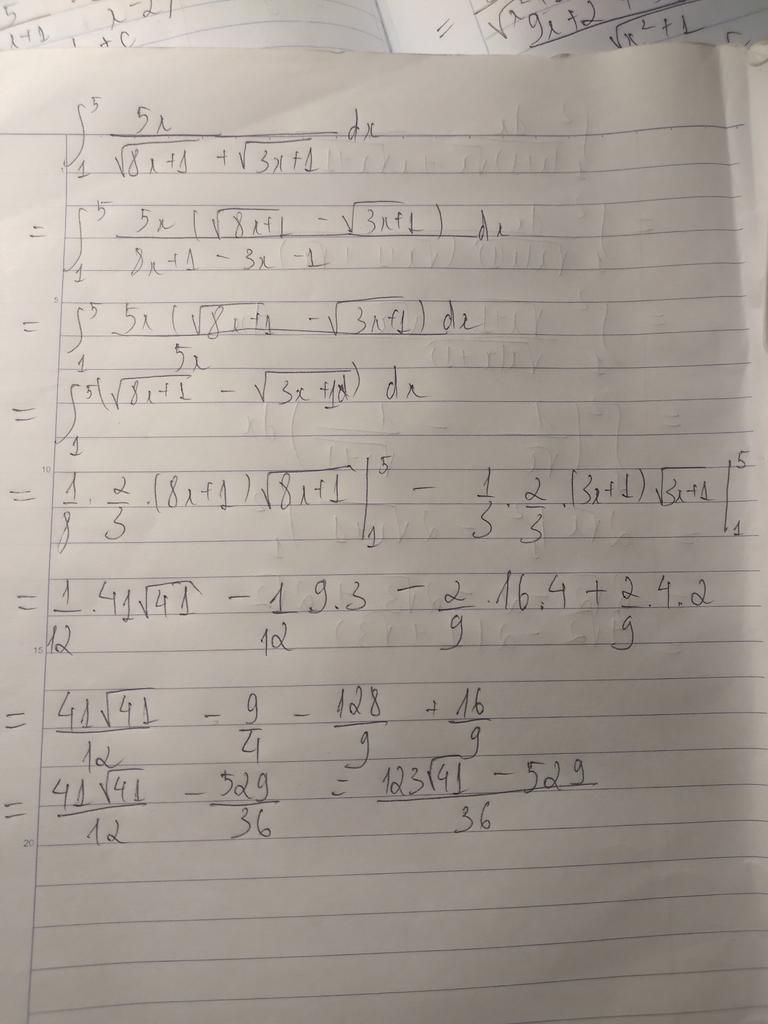 5 x-21
x+1 + c
= √x 9x+2
√x²+1
∫₁⁵ 5x/(√(8x+1) + √(3x+1)) dx
= ∫₁⁵ 5x(√(8x+1) - √(3x+1))/(8x+1 - 3x - 1) dx
= ∫₁⁵ 5x(√(8x+1) - √(3x+1))/5x dx
= ∫₁⁵ (√(8x+1) - √(3x+1)) dx
= 1/8 · 2/3 · (8x+1)√(8x+1) |₁⁵ - 1/3 · 2/3 · (3x+1)√(3x+1) |₁⁵
= 1/12 · 41√41 - 1/12 9.3 - 2/9 · 16.4 + 2/9 · 4.2
= 41√41/12 - 9/4 - 128/9 + 16/9
= 41√41/12 - 529/36 = (123√41 - 529)/36